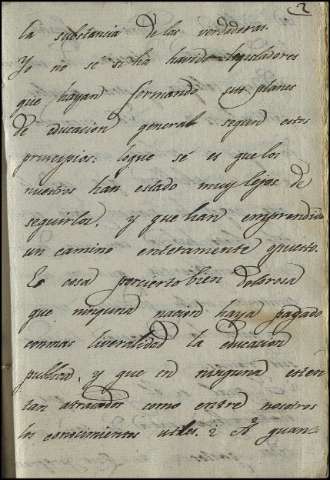 2
la substancia de las verdaderas.
Yo no sé si ha havido legisladores
que hayan formando sus planes
de educacion general segun estos
principios: loque sé es que los
nuestros han estado muy lejos de
seguirlos, y que han emprendido
un camino enteramente opuesto.
Es cosa porcierto bien dolorosa
que ninguna nacion haya pagado
conmas liveralidad la educacion
publica, y que en ninguna esten
tan atrasados como entre nosotros
los conocimientos utiles.